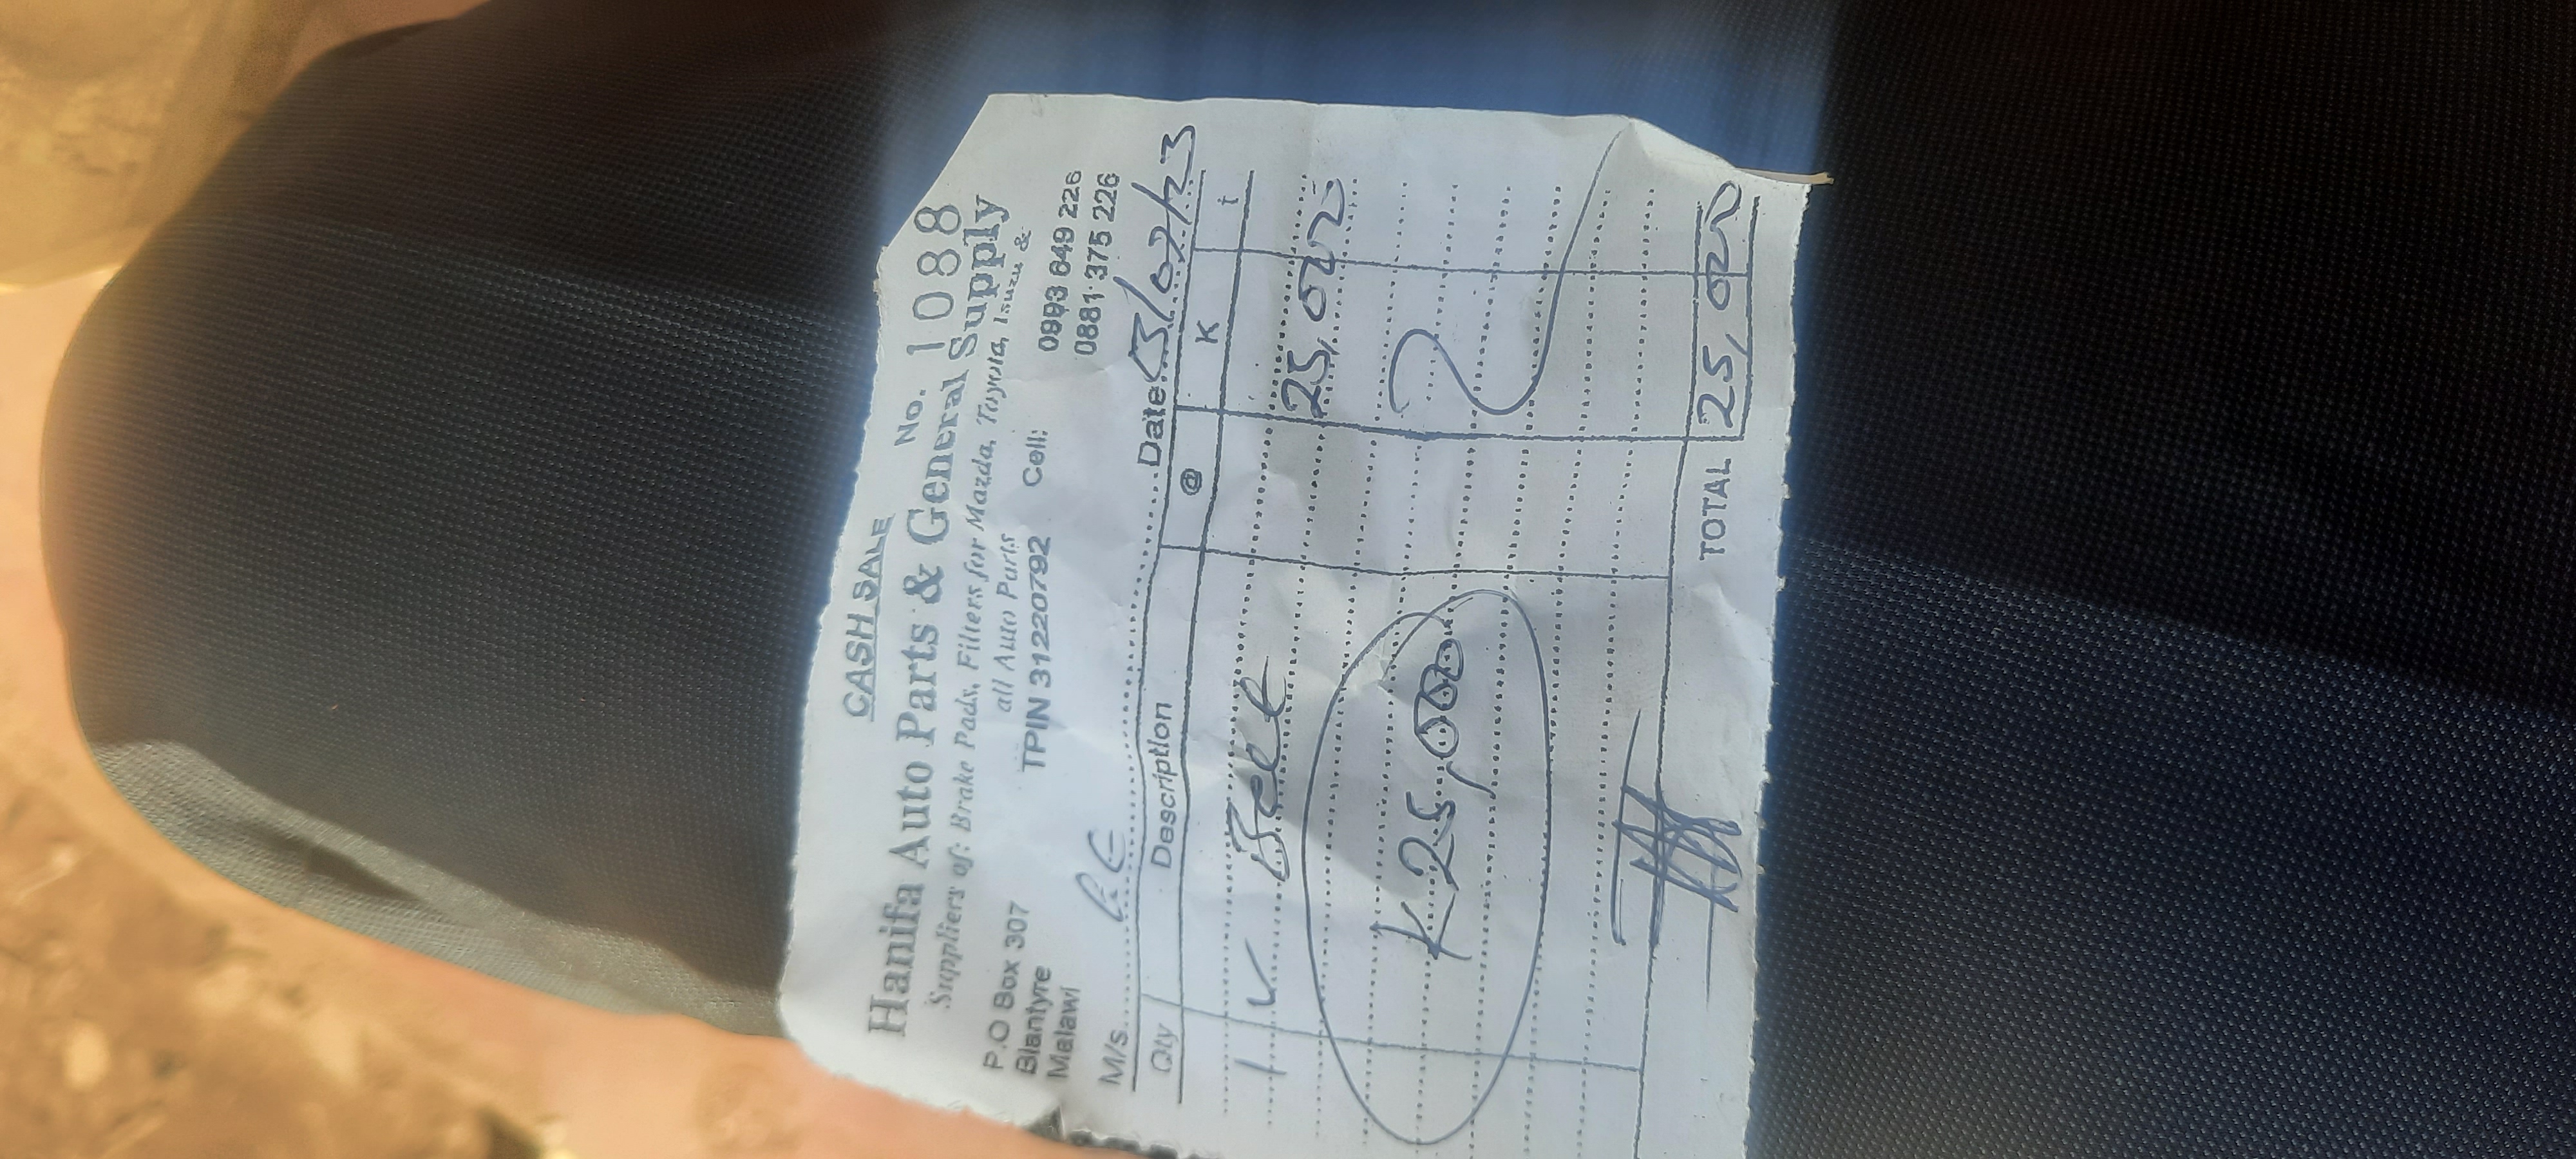 CASH SALE
No. 1088
Hanifa Auto Parts & General Supply
Suppliers of: Brake Pads, Filters for Mazda, Toyota, Isuzu &
all Auto Parts
P.O Box 307
Blantyre
Malawi
TPIN 31220792
Cell: 0993 649 226
0881 375 226
M/s. Date 13/07/23
Qty Description @ K t
1 V Belt 25,000
K25,000
TOTAL 25,000